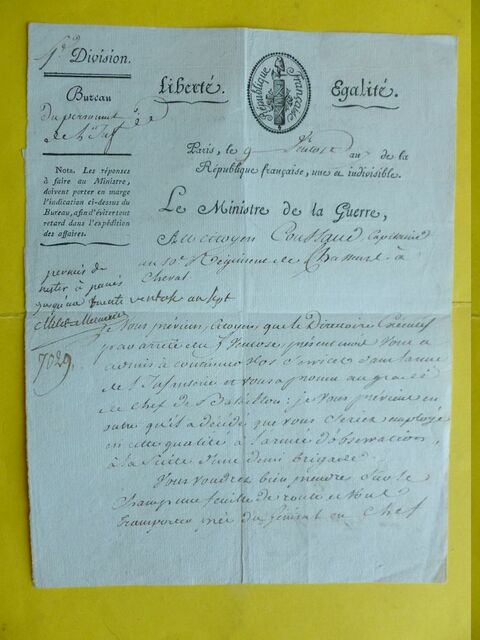 Division.
Bureau
du personnel
Liberté.
République française
Egalité.
Nota. Les réponses
à faire au Ministre,
doivent porter en marge
l'indication ci-dessus du
Bureau, afin d'éviter tout
retard dans l'expédition
des affaires.
Paris, le 9 Ventose an de la
République française, une & indivisible.
Le Ministre de la Guerre,
Au citoyen Capitaine
au 10e Régiment de Chasseurs à
Cheval
permis de
rester à paris
jusqu'au trente ventose an sept
7029.
Je vous préviens, citoyen, que le Directoire Exécutif
par arrêté du Ventose, présent mois vous a
admis à continuer vos services dans l'arme
de l'Infanterie et vous a promu au grade
de chef de Bataillon: je vous préviens en
outre qu'il a décidé que vous seriez employé
en cette qualité à l'armée d'observation,
à la suite d'une demi brigade.
Vous voudrez bien prendre sur le
champ une feuille de route et vous
transporter près du Général en chef